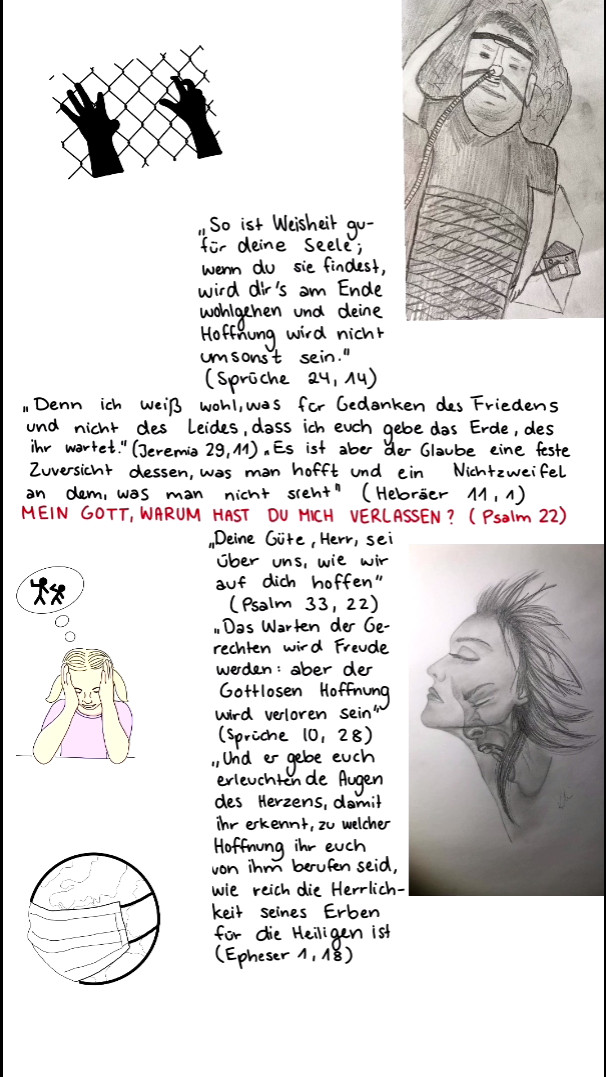 „So ist Weisheit gu-
für deine Seele;
wenn du sie findest,
wird dir's am Ende
wohlgehen und deine
Hoffnung wird nicht
umsonst sein."
(Sprüche 24, 14)
„Denn ich weiß wohl, was für Gedanken des Friedens
und nicht des Leides, dass ich euch gebe das Erde, des
ihr wartet." (Jeremia 29,11) „Es ist aber der Glaube eine feste
Zuversicht dessen, was man hofft und ein Nichtzweifel
an dem, was man nicht sieht" (Hebräer 11, 1)
MEIN GOTT, WARUM HAST DU MICH VERLASSEN? (Psalm 22)
„Deine Güte, Herr, sei
über uns, wie wir
auf dich hoffen"
(Psalm 33, 22)
„Das Warten der Ge-
rechten wird Freude
werden: aber der
Gottlosen Hoffnung
wird verloren sein"
(Sprüche 10, 28)
„Und er gebe euch
erleuchtende Augen
des Herzens, damit
ihr erkennt, zu welcher
Hoffnung ihr euch
von ihm berufen seid,
wie reich die Herrlich-
keit seines Erben
für die Heiligen ist
(Epheser 1, 18)